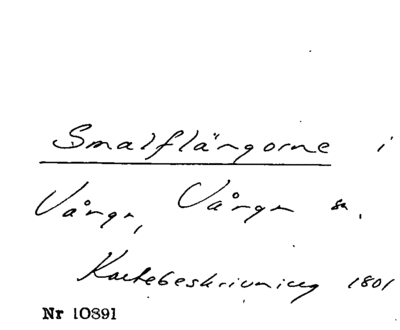 Smalflängorne i
Vånga, Vånga sn.
Kartebeskrivning 1801
Nr 10891